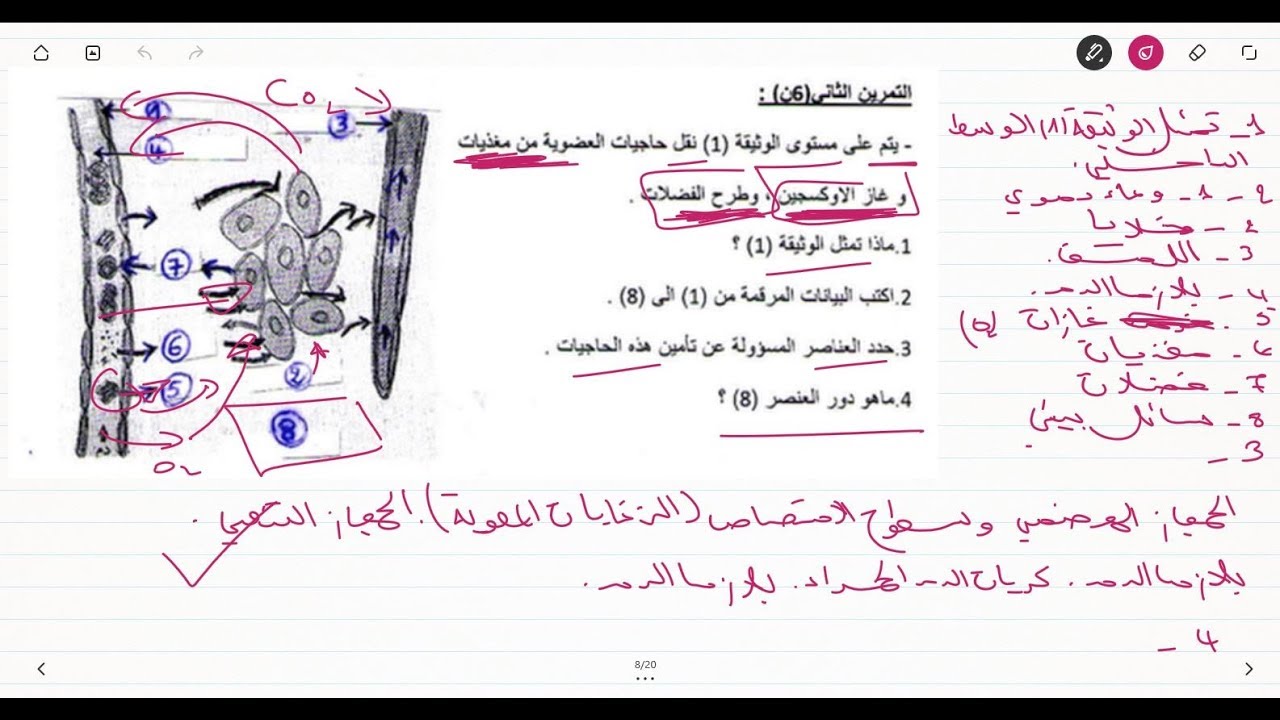 التمرين الثاني(6ن) :
- يتم على مستوى الوثيقة (1) نقل حاجيات العضوية من مغذيات
و غاز الاوكسجين ، وطرح الفضلات .
1.ماذا تمثل الوثيقة (1) ؟
2.اكتب البيانات المرقمة من (1) الى (8) .
3.حدد العناصر المسؤولة عن تأمين هذه الحاجيات .
4.ماهو دور العنصر (8) ؟
CO2
3
4
7
6
5
2
8
O2
1- تمثل الوثيقة (1) الوسط
الداخلي.
2- 1- وعاء دموي
2- خلايا
3- اللمف.
4- بلازما الدم.
5. غازات (O2)
6- مغذيات
7- فضلات
8- سائل بيني
3-
الجهاز الهضمي وسطوح الامتصاص (الزغابات المعوية). الجهاز التنفسي.
بلازما الدم. كريات الدم الحمراء. بلازما الدم.
4-
8/20